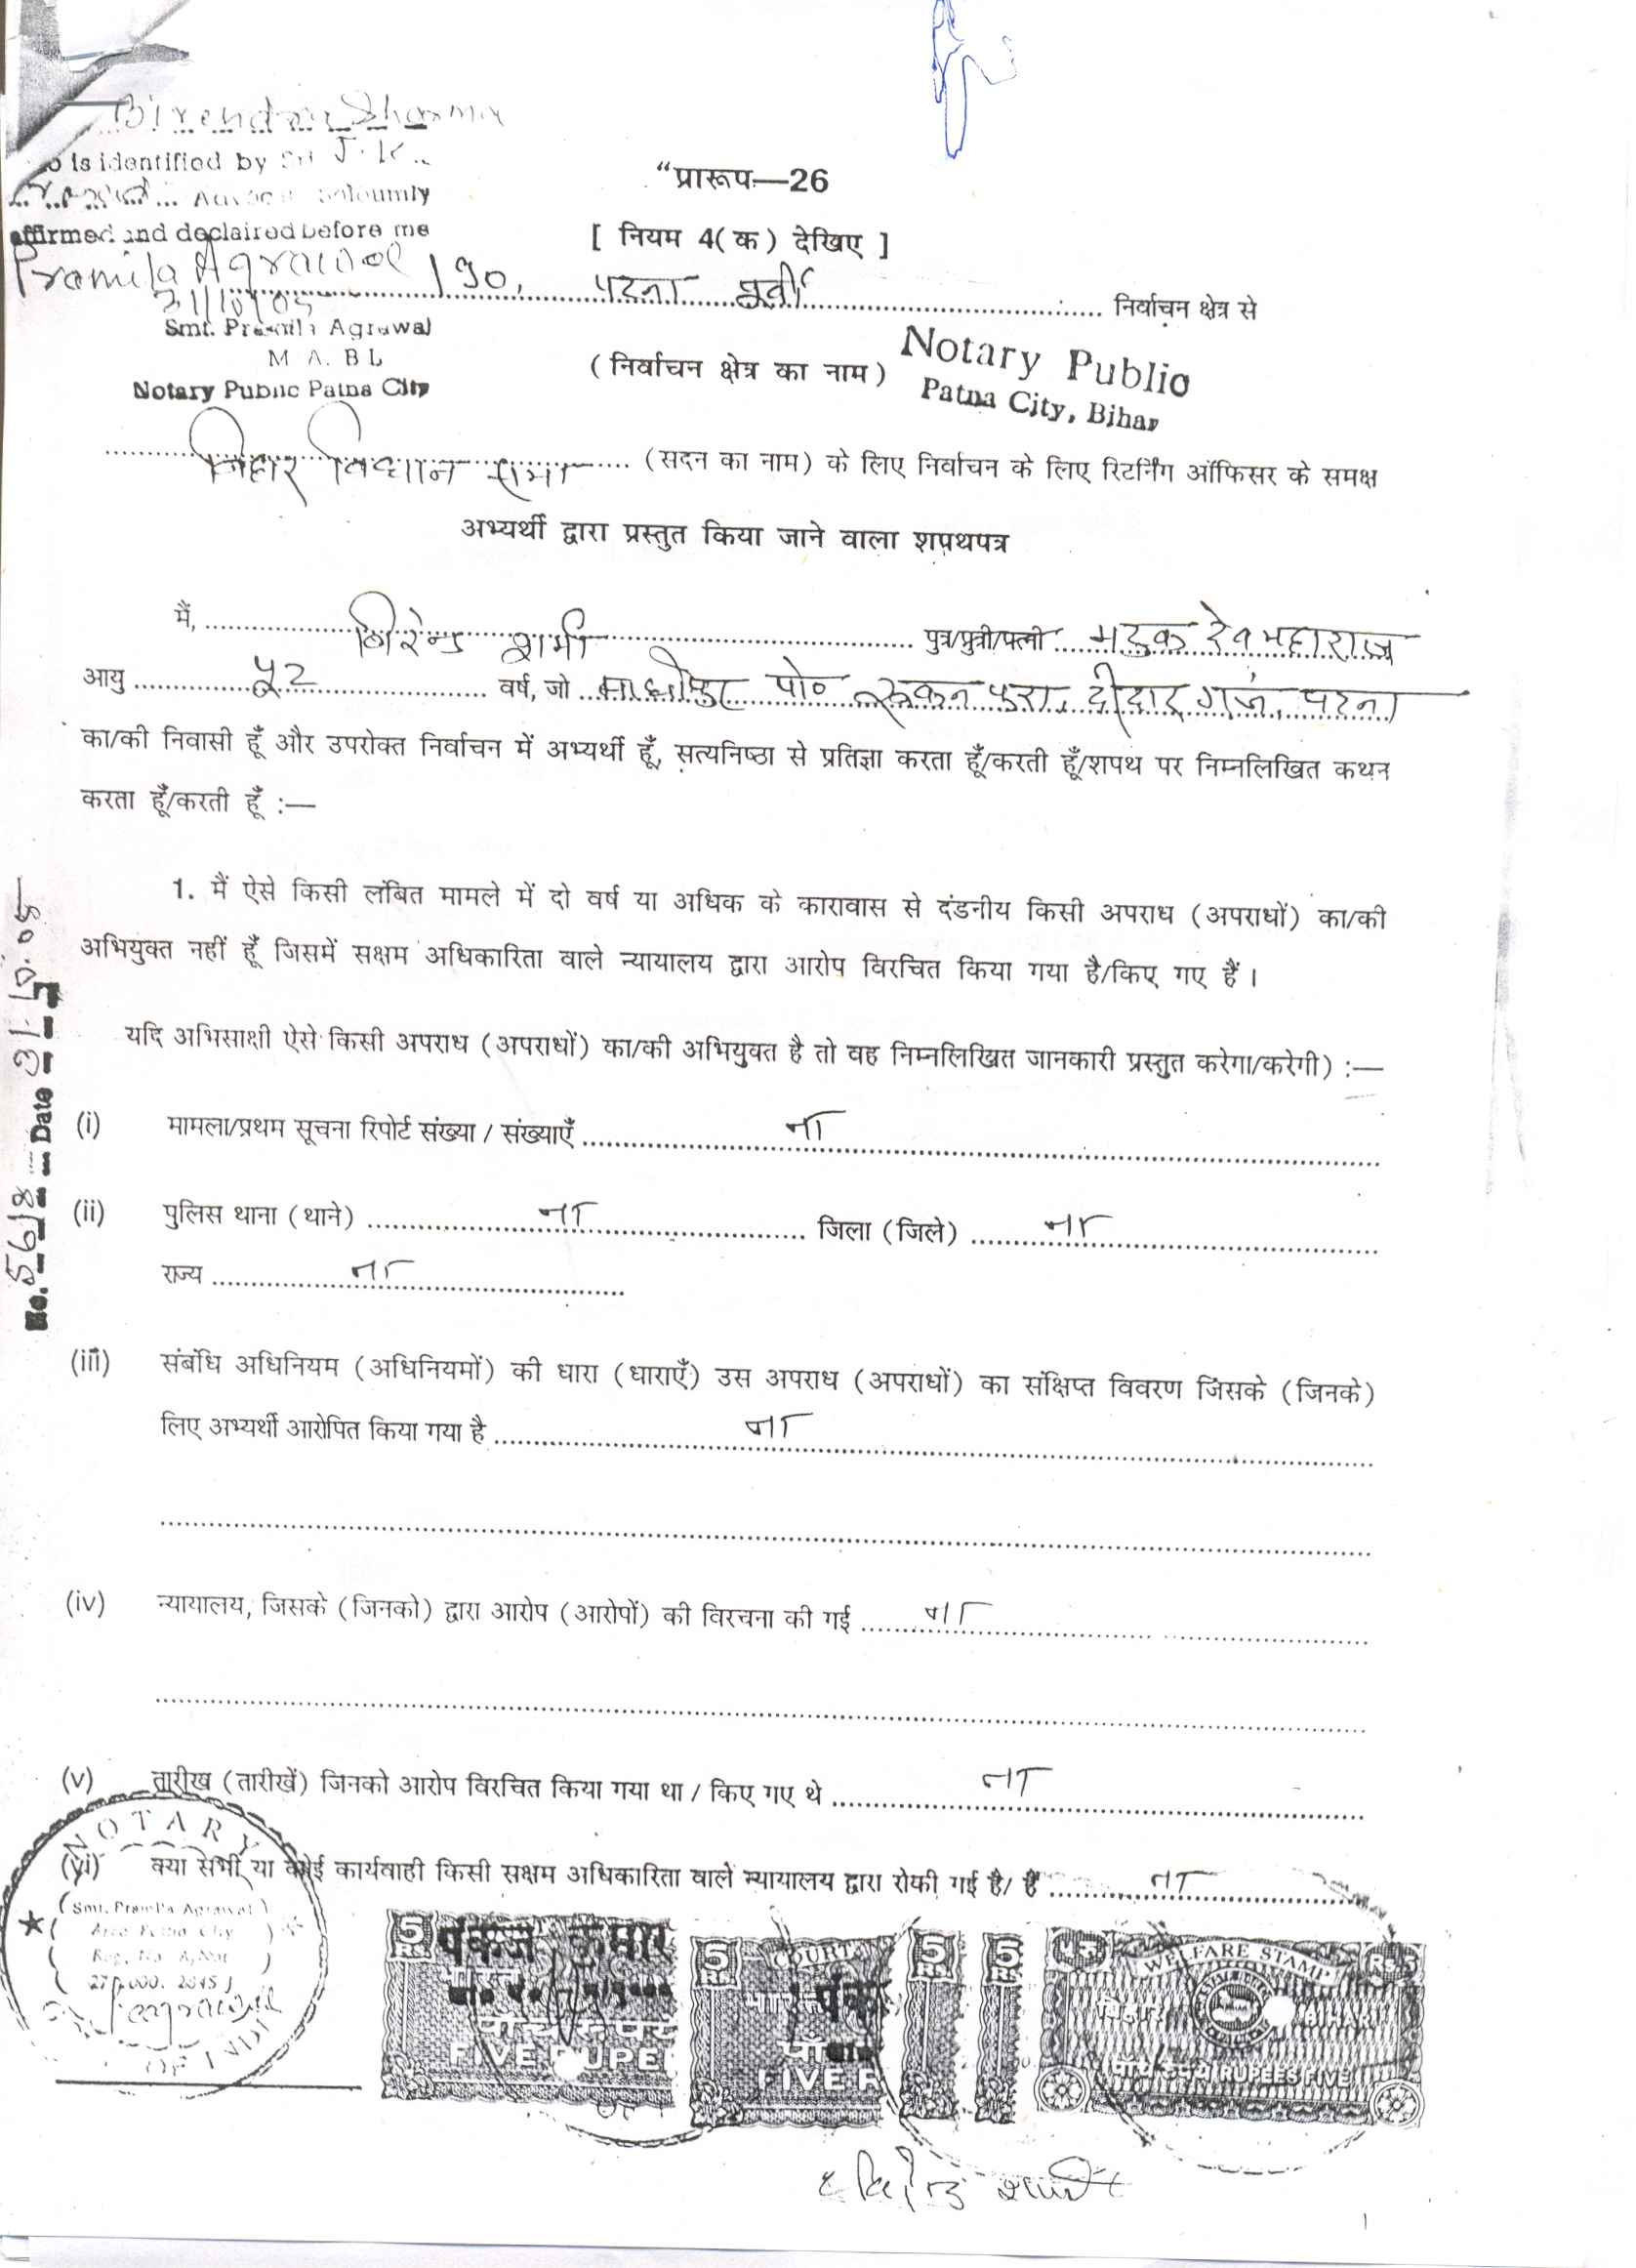 Birendra Sharma
is identified by Sri J. K.
affirmed and declaired before me
Pramila Agrawal
Smt. Pramila Agrawal
M A. B L
Notary Public Patna City
"प्रारूप—26
[ नियम 4(क) देखिए ]
190, पटना पूर्वी निर्वाचन क्षेत्र से
(निर्वाचन क्षेत्र का नाम)
Notary Public
Patna City, Bihar
बिहार विधान सभा (सदन का नाम) के लिए निर्वाचन के लिए रिटर्निंग ऑफिसर के समक्ष
अभ्यर्थी द्वारा प्रस्तुत किया जाने वाला शपथपत्र
मैं, बिरेन्द्र शर्मा पुत्र/पुत्री/पत्नी भटुक देव महाराज
आयु ५२ वर्ष, जो माधोपुर पो० रूकनपुरा, दीदारगंज, पटना
का/की निवासी हूँ और उपरोक्त निर्वाचन में अभ्यर्थी हूँ, सत्यनिष्ठा से प्रतिज्ञा करता हूँ/करती हूँ/शपथ पर निम्नलिखित कथन
करता हूँ/करती हूँ :—
1. मैं ऐसे किसी लंबित मामले में दो वर्ष या अधिक के कारावास से दंडनीय किसी अपराध (अपराधों) का/की
अभियुक्त नहीं हूँ जिसमें सक्षम अधिकारिता वाले न्यायालय द्वारा आरोप विरचित किया गया है/किए गए हैं ।
यदि अभिसाक्षी ऐसे किसी अपराध (अपराधों) का/की अभियुक्त है तो वह निम्नलिखित जानकारी प्रस्तुत करेगा/करेगी) :—
No. 5618 Date 31.10.05
(i) मामला/प्रथम सूचना रिपोर्ट संख्या / संख्याएँ ना
(ii) पुलिस थाना (थाने) ना जिला (जिले) ना
राज्य ना
(iii) संबंधि अधिनियम (अधिनियमों) की धारा (धाराएँ) उस अपराध (अपराधों) का संक्षिप्त विवरण जिसके (जिनके)
लिए अभ्यर्थी आरोपित किया गया है ना
(iv) न्यायालय, जिसके (जिनको) द्वारा आरोप (आरोपों) की विरचना की गई ना
(v) तारीख (तारीखें) जिनको आरोप विरचित किया गया था / किए गए थे ना
(vi) क्या सभी या कोई कार्यवाही किसी सक्षम अधिकारिता वाले न्यायालय द्वारा रोकी गई है/ हैं ना
NOTARY
(Smt. Pramila Agrawal)
Area Patna City
OF INDIA
5 Rs. पंकज कुमार
भारत
पाँच रुपये
FIVE RUPEE
5 Rs. COURT
भारत
FIVE R
5 Rs.
5 Rs.
WELFARE STAMP
बिहार BIHAR
पाँच रुपये RUPEES FIVE
बिरेन्द्र शर्मा
1